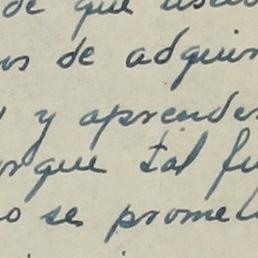 de que
de adquir
y aprender
orque tal fu
o se prome